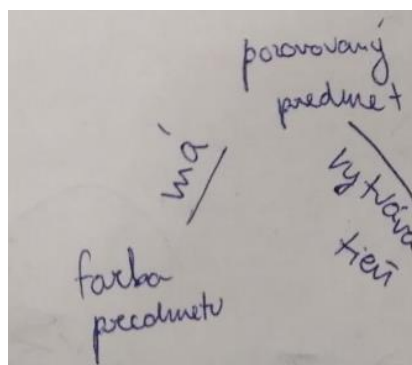 pozorovaný
predmet
má
vytvára
tieň
farba
predmetu